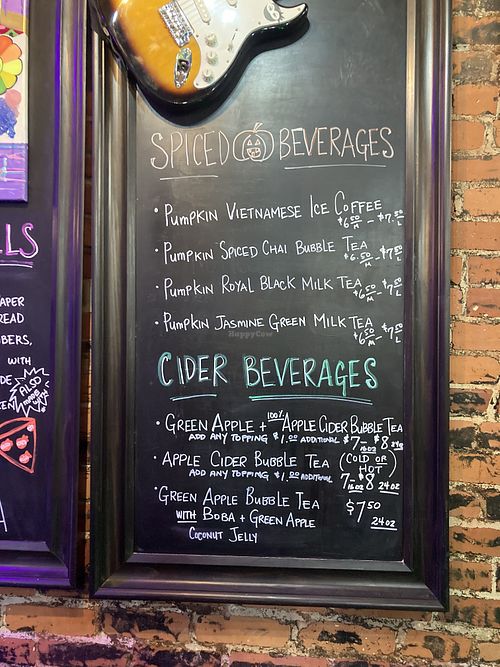 SPICED BEVERAGES
• PUMPKIN VIETNAMESE ICE COFFEE
$6.50 M - $7.50 L
• PUMPKIN SPICED CHAI BUBBLE TEA
$6.50 M - $7.50 L
• PUMPKIN ROYAL BLACK MILK TEA
$6.50 M - $7.50 L
• PUMPKIN JASMINE GREEN MILK TEA
$6.50 M - $7.50 L
HappyCow
CIDER BEVERAGES
• GREEN APPLE + 100% APPLE CIDER BUBBLE TEA
ADD ANY TOPPING $1.00 ADDITIONAL $7 16oz - $8 24oz
• APPLE CIDER BUBBLE TEA (COLD OR HOT)
ADD ANY TOPPING $1.00 ADDITIONAL 7 16oz - $8 24oz
• GREEN APPLE BUBBLE TEA
WITH BOBA + GREEN APPLE
COCONUT JELLY
$7.50
24oz
LLS
APER
READ
BBERS,
WITH
DE
ALSO